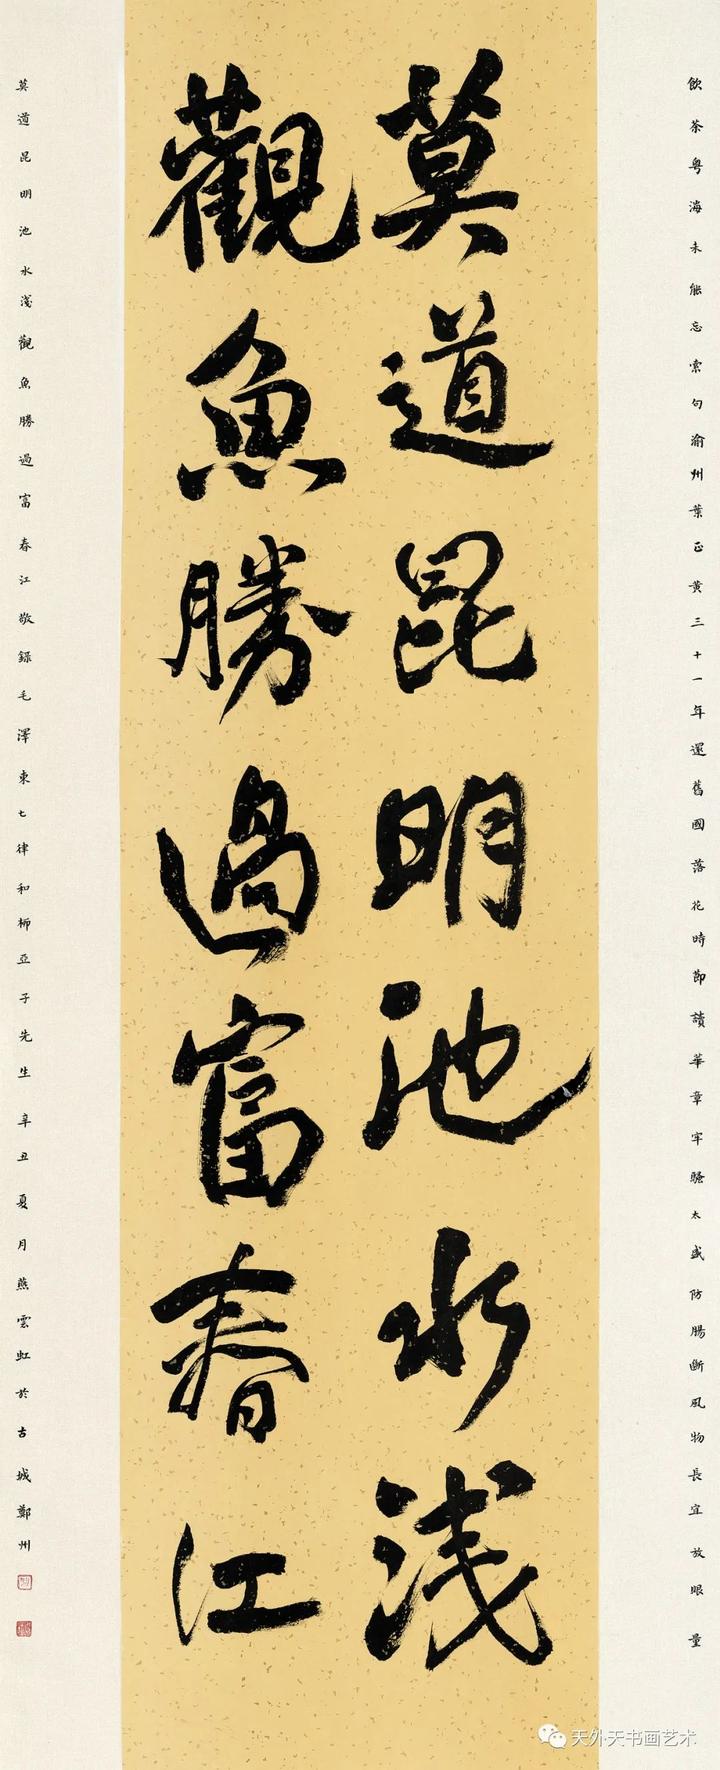 飲茶粤海未能忘索句渝州葉正黄三十一年還舊國落花時節讀華章牢騷太盛防腸斷風物長宜放眼量
莫道昆明池水浅
觀魚勝過富春江
莫道昆明池水淺觀魚勝過富春江敬録毛澤東七律和柳亞子先生辛丑夏月燕雲虹於古城鄭州
天外天书画艺术